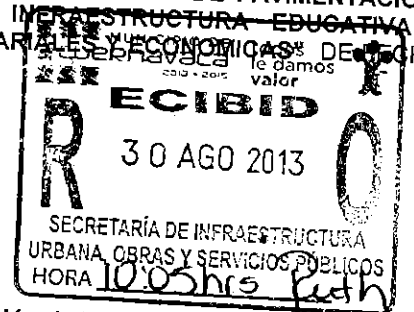 INFRAESTRUCTURA EDUCATIVA
Y ECONOMICAS" DE
Cuernavaca le damos
2013 - 2015 valor
RECIBIDO
30 AGO 2013
SECRETARÍA DE INFRAESTRUCTURA
URBANA, OBRAS Y SERVICIOS PÚBLICOS
HORA 10:05 hrs Ruth